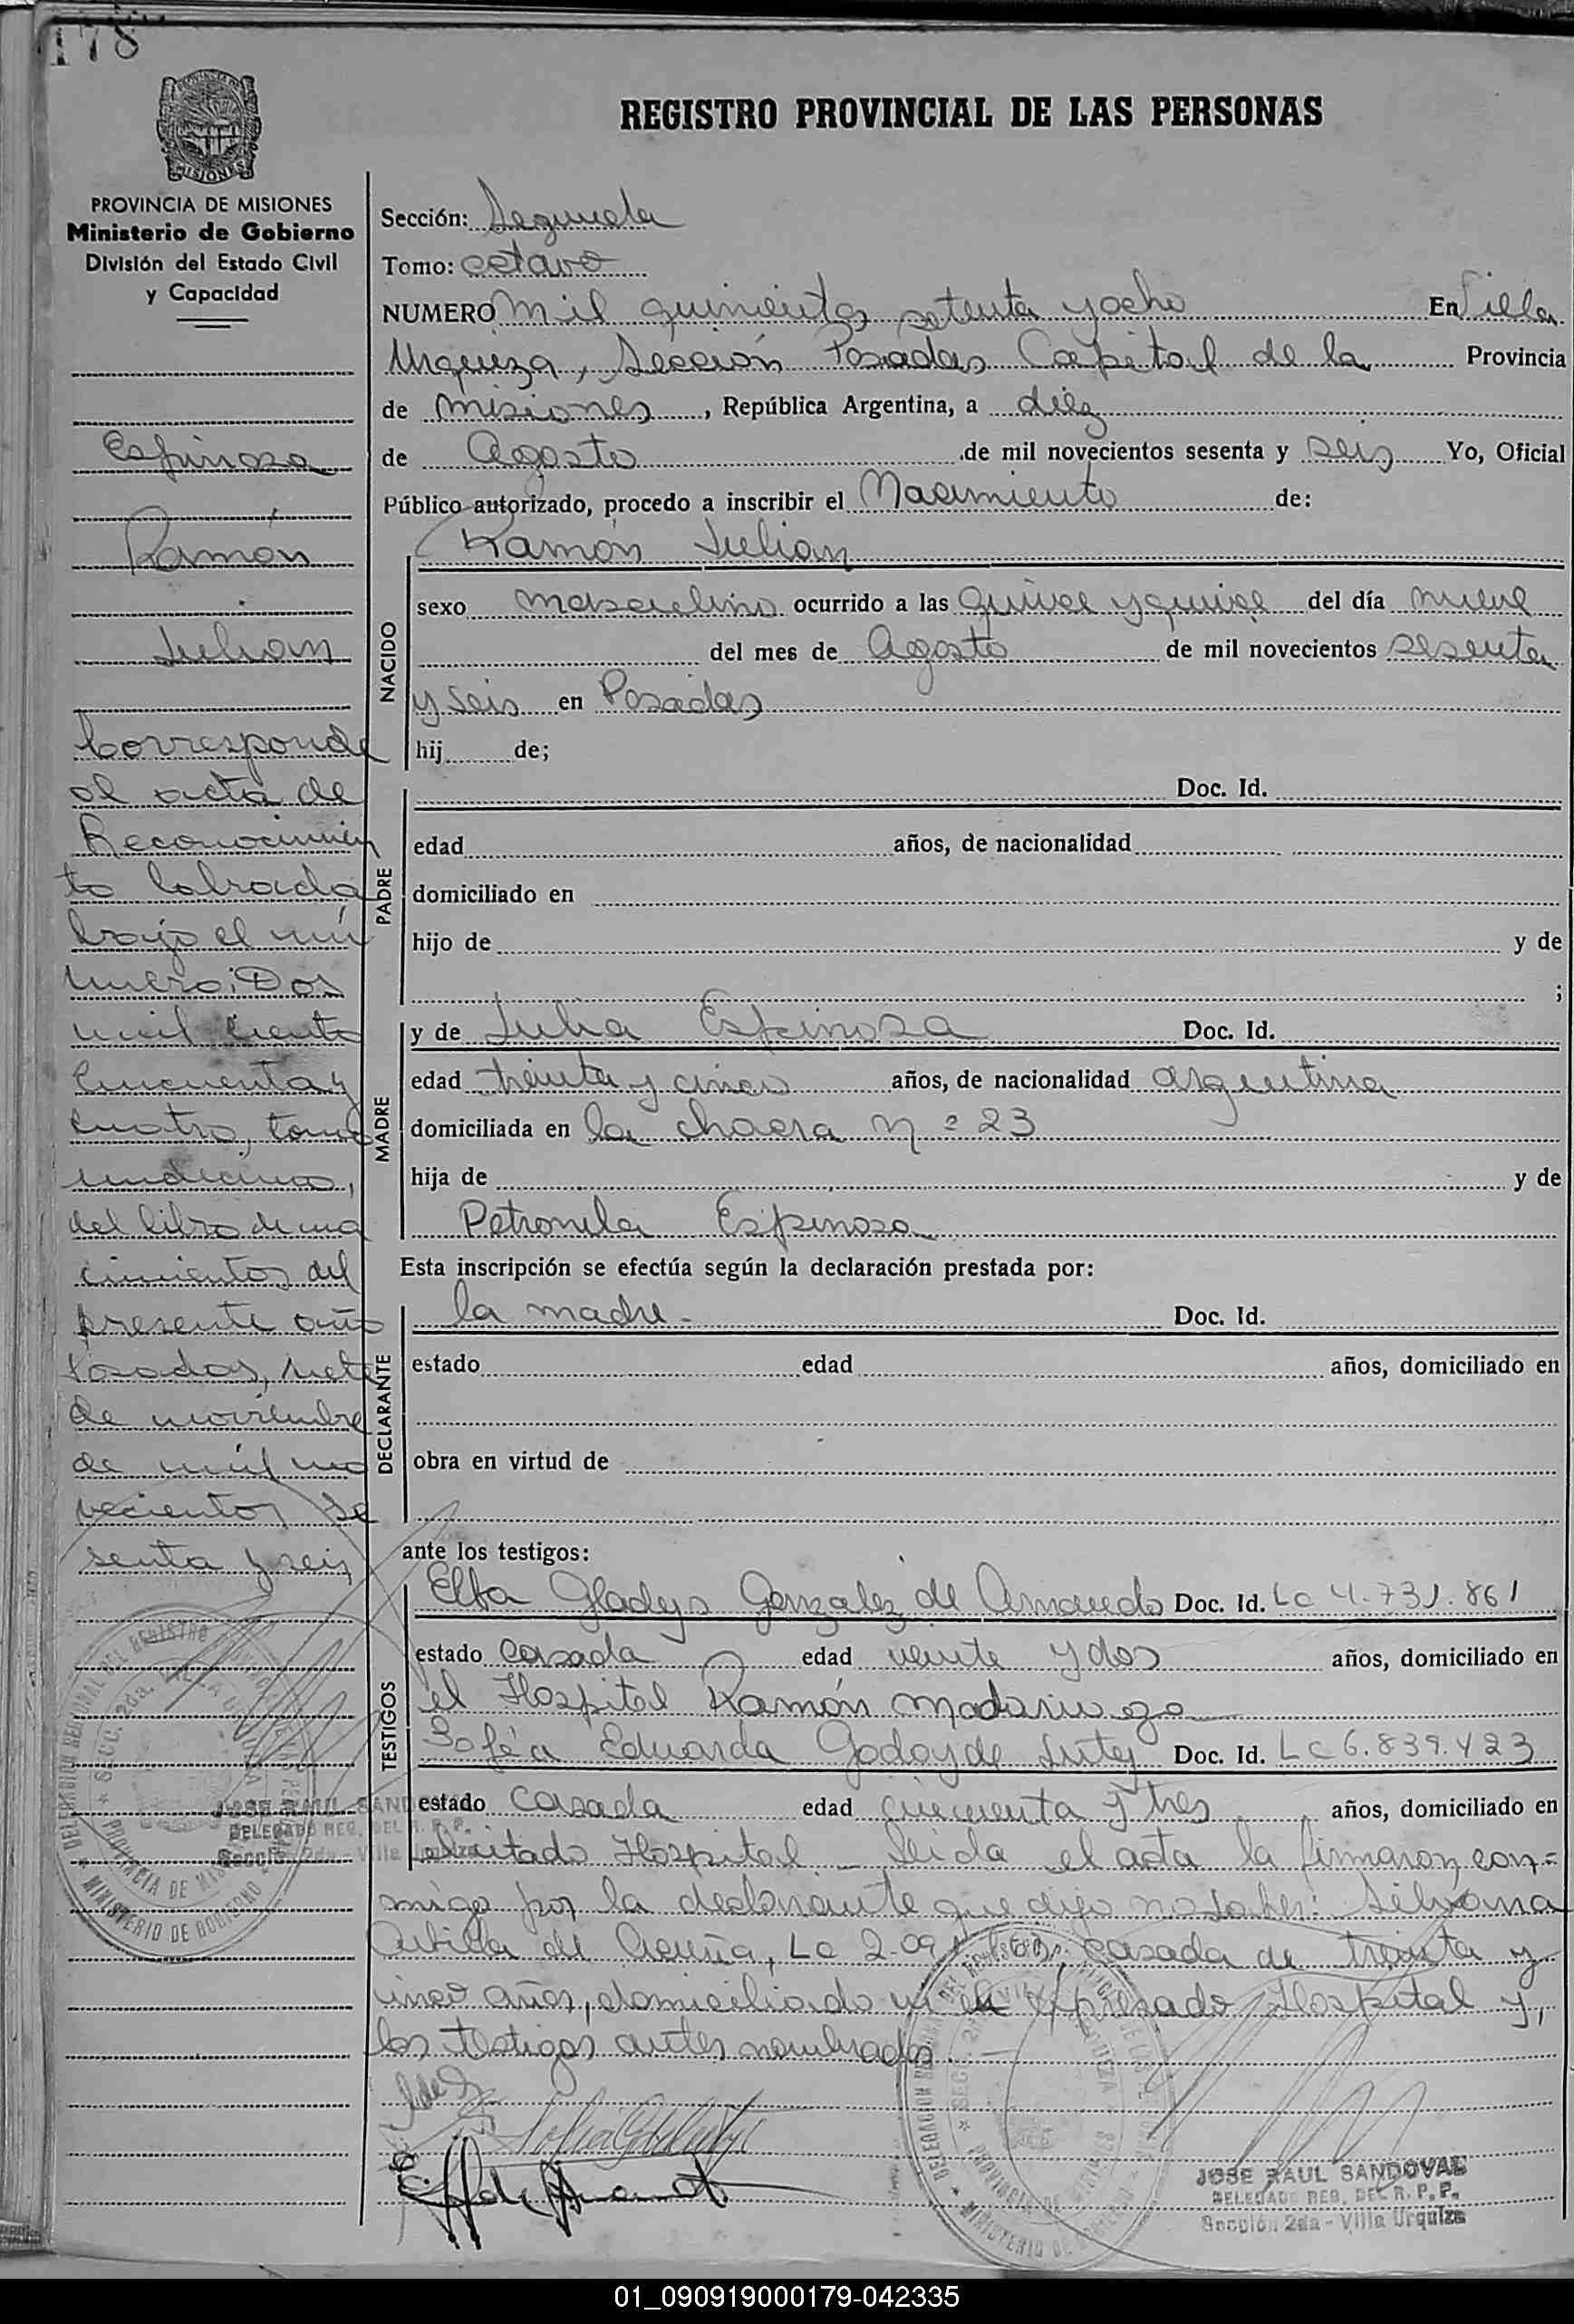 178
REGISTRO PROVINCIAL DE LAS PERSONAS
PROVINCIA DE MISIONES
Ministerio de Gobierno
División del Estado Civil
y Capacidad
Espinosa
Ramón
Julian
Corresponde
al acta de
Reconocimien
to labrada
bajo el nú
mero: Dos
mil ciento
cincuenta y
cuatro, tomo
undecimo,
del libro de na
cimientos del
presente año
Posadas, siete
de noviembre
de mil no
vecientos se
senta y seis
Sección: Segunda
Tomo: octavo
NUMERO mil quinientos setenta y ocho En Villa
Urquiza, Sección Posadas Capital de la Provincia
de Misiones, República Argentina, a diez
de Agosto de mil novecientos sesenta y seis Yo, Oficial
Público autorizado, procedo a inscribir el Nacimiento de:
NACIDO
Ramón Julian
sexo masculino ocurrido a las quince y quince del día nueve
del mes de Agosto de mil novecientos sesenta
y seis en Posadas
hij de;
PADRE
Doc. Id.
edad años, de nacionalidad
domiciliado en
hijo de y de
;
MADRE
y de Julia Espinosa Doc. Id.
edad treinta y cinco años, de nacionalidad argentina
domiciliada en la chacra nº 23
hija de y de
Petronila Espinosa
Esta inscripción se efectúa según la declaración prestada por:
DECLARANTE
la madre.- Doc. Id.
estado edad años, domiciliado en
obra en virtud de
ante los testigos:
TESTIGOS
Elba Gladys Gonzalez de Doc. Id. Lc 4.731.861
estado casada edad veinte y dos años, domiciliado en
el Hospital Ramón Madariaga
Sofía Eduarda Godoy de Doc. Id. Lc 6.839.423
estado casada edad cincuenta y tres años, domiciliado en
el citado Hospital.- Leida el acta la firmaron con=
migo por la declarante que dijo no saber: Silvana
de Acuña, Lc casada de treinta y
cinco años, domiciliada en el expresado Hospital y,
los testigos antes nombrados.-
JOSE RAUL SANDOVAL
DELEGADO REG. DEL R. P. P.
Sección 2da - Villa Urquiza
JOSE RAUL SANDOVAL
DELEGADO REG. DEL R. P. P.
Sección 2da - Villa Urquiza
01_090919000179-042335